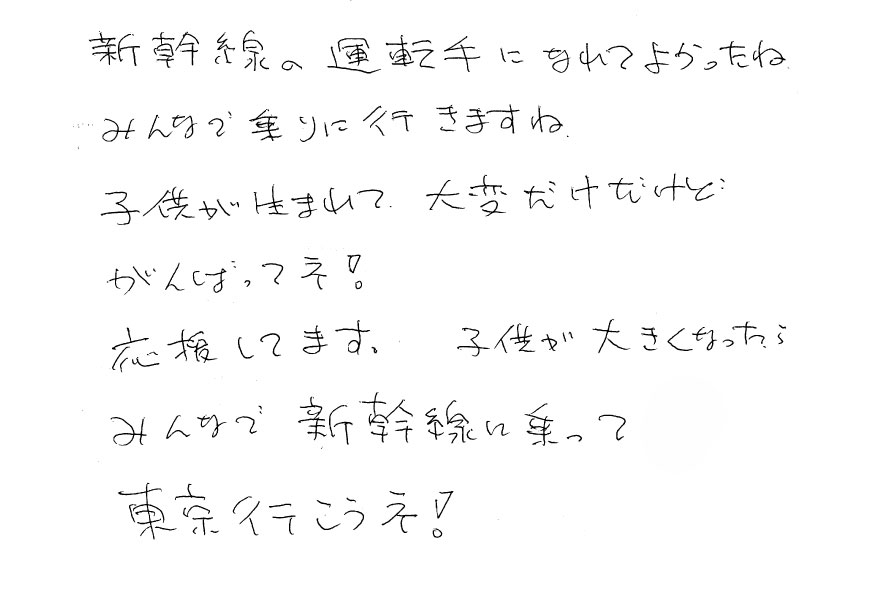 新幹線の運転手になれてよかったね
みんなで乗りに行きますね.
子供が生まれて.大変だけだけど
がんばってネ!
応援してます。 子供が大きくなったら
みんなで新幹線に乗って
東京行こうネ!